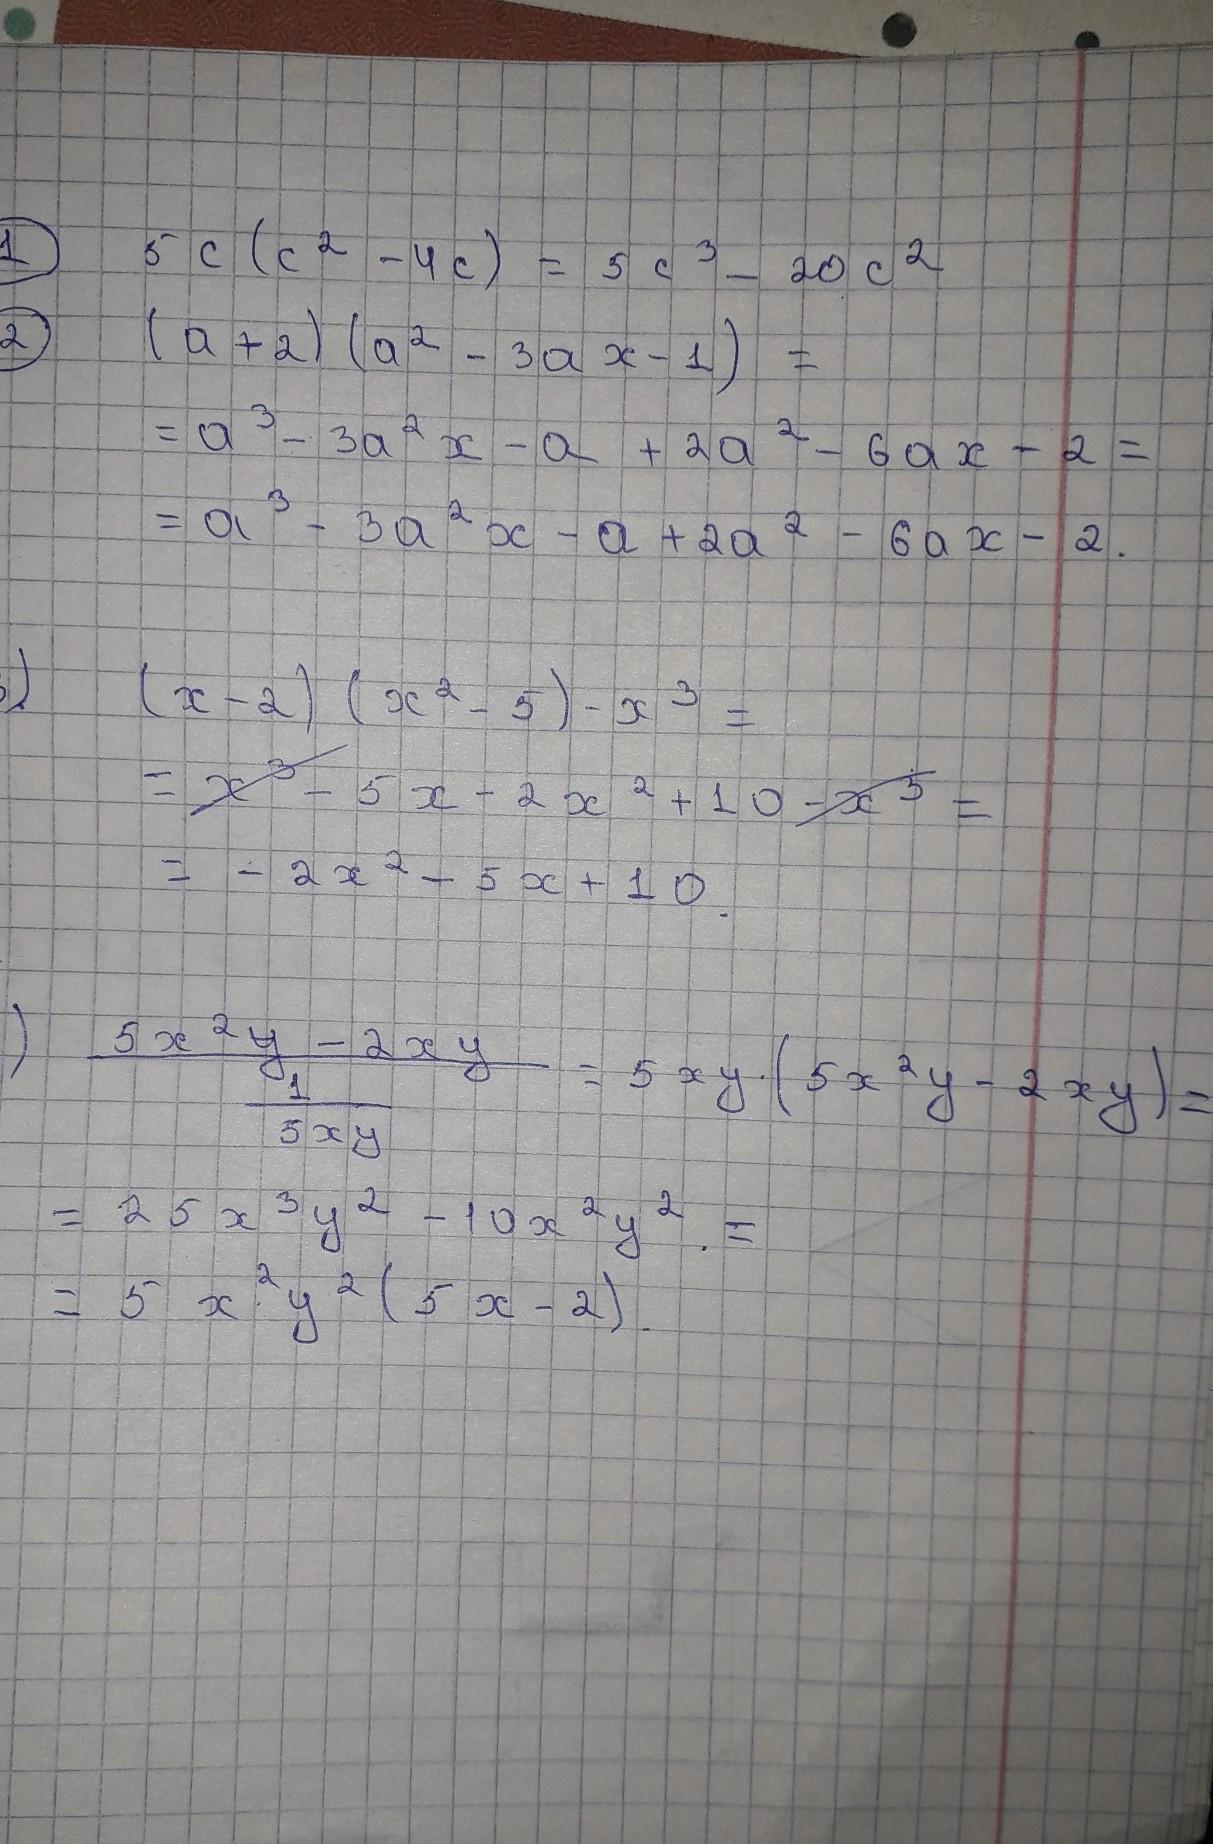 1 5c(c² - 4c) = 5c³ - 20c²
2 (a+2)(a² - 3ax - 1) =
= a³ - 3a²x - a + 2a² - 6ax - 2 =
= a³ - 3a²x - a + 2a² - 6ax - 2.
) (x-2)(x² - 5) - x³ =
= x³ - 5x - 2x² + 10 - x³ =
= - 2x² - 5x + 10.
) 5x²y - 2xy / 1/5xy = 5xy·(5x²y - 2xy) =
= 25x³y² - 10x²y². =
= 5x²y²(5x - 2).